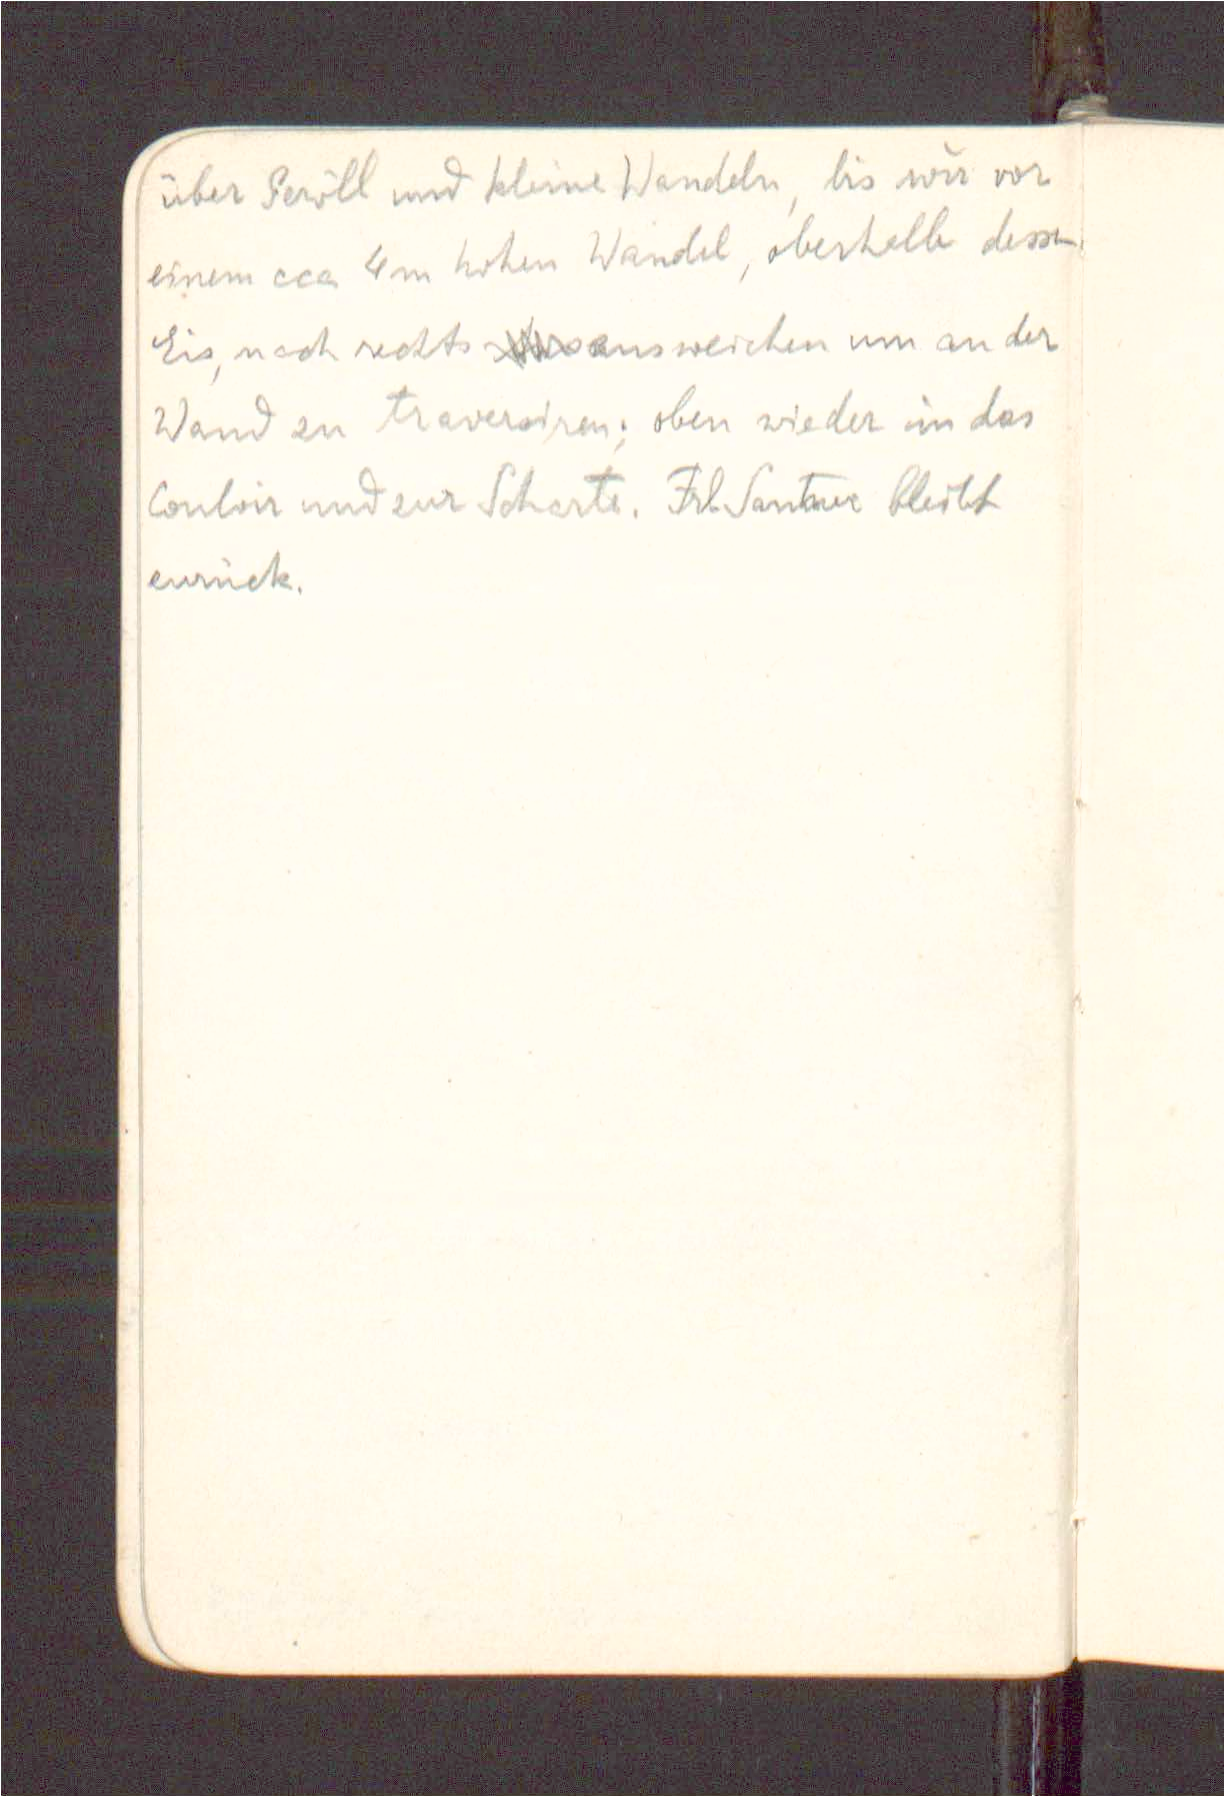 über Geröll und kleine Wandeln, bis wir vor
einem cca 4m hohen Wandel, oberhalb dessen
Eis, nach rechts ausweichen um an der
Wand zu traversiren; oben wieder in das
Couloir und zur Scharte. Frl. Santner bleibt
zurück.